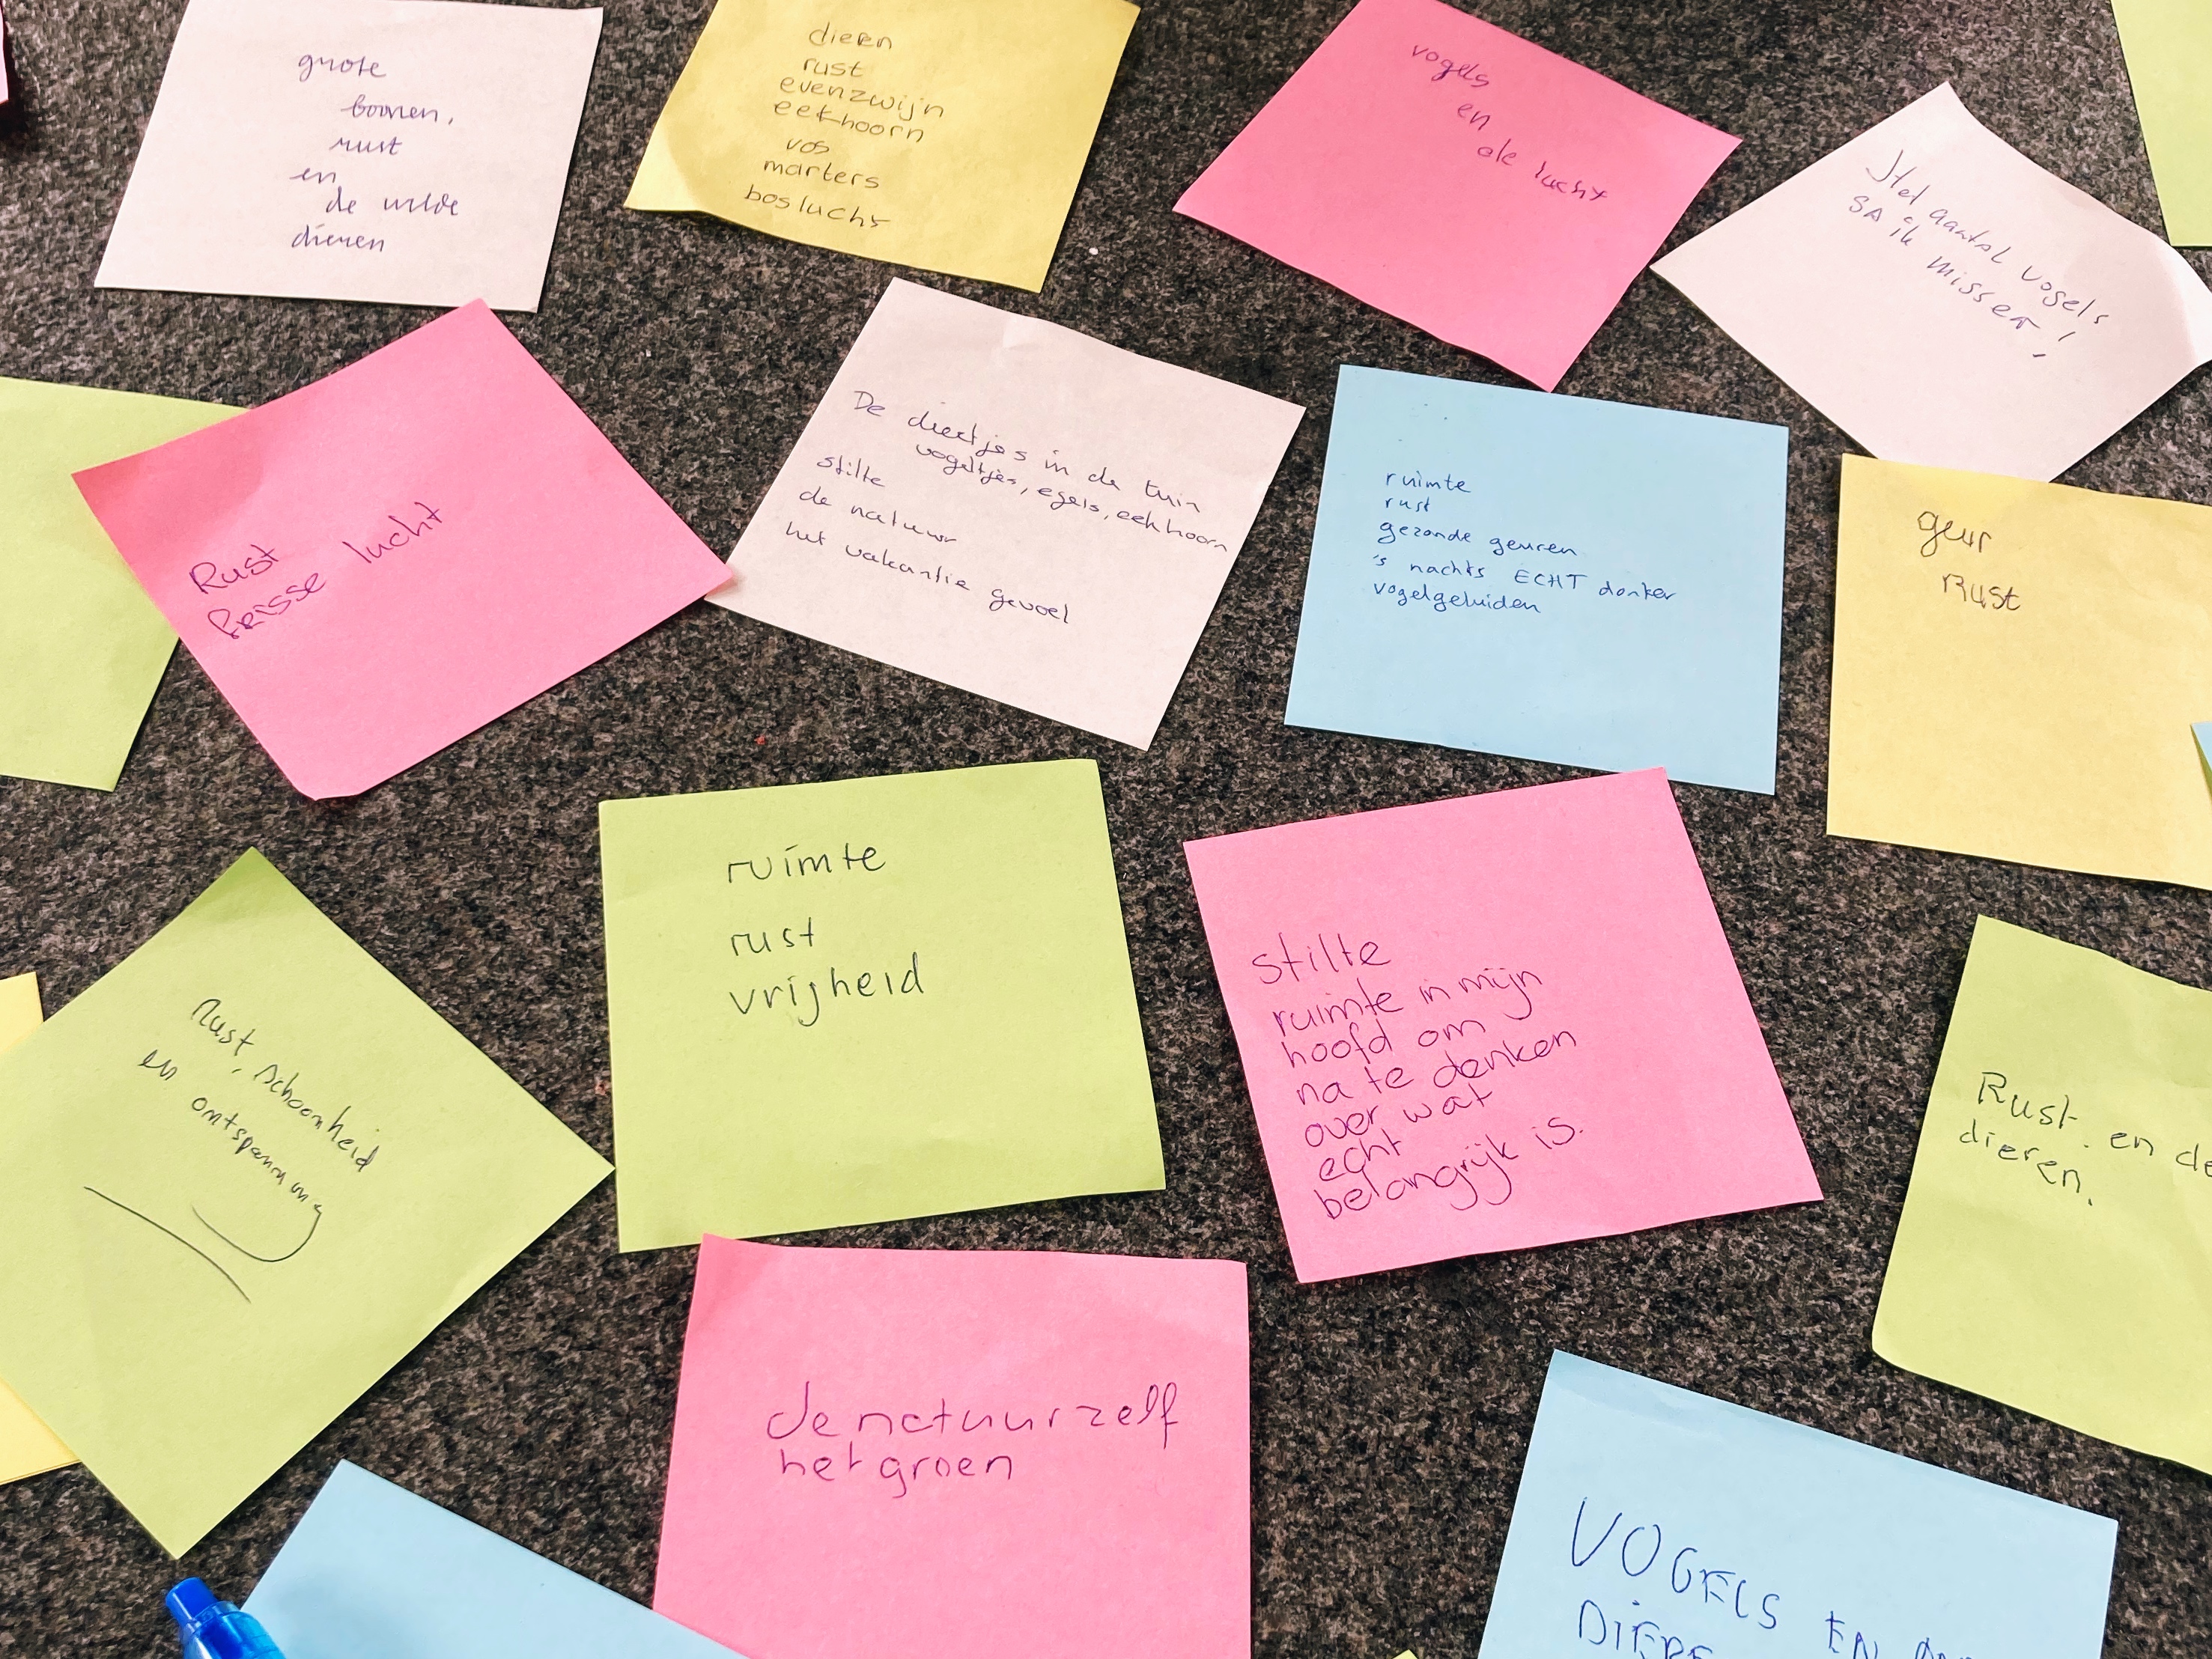 grote
bomen,
rust
en
de wilde
dieren
dieren
rust
evenzwijn
eekhoorn
vos
marters
boslucht
vogels
en
de lucht
Het aantal vogels
SA ik
missen!
Rust
frisse lucht
De diertjes in de tuin
vogeltjes, egels, eekhoorn
stilte
de natuur
het vakantie gevoel
ruimte
rust
gezonde geuren
's nachts ECHT donker
vogelgeluiden
geur
Rust
Rust, schoonheid
en ontspanning
ruimte
rust
vrijheid
stilte
ruimte in mijn
hoofd om
na te denken
over wat
echt
belangrijk is.
Rust. en de
dieren.
de natuur zelf
het groen
VOGELS EN